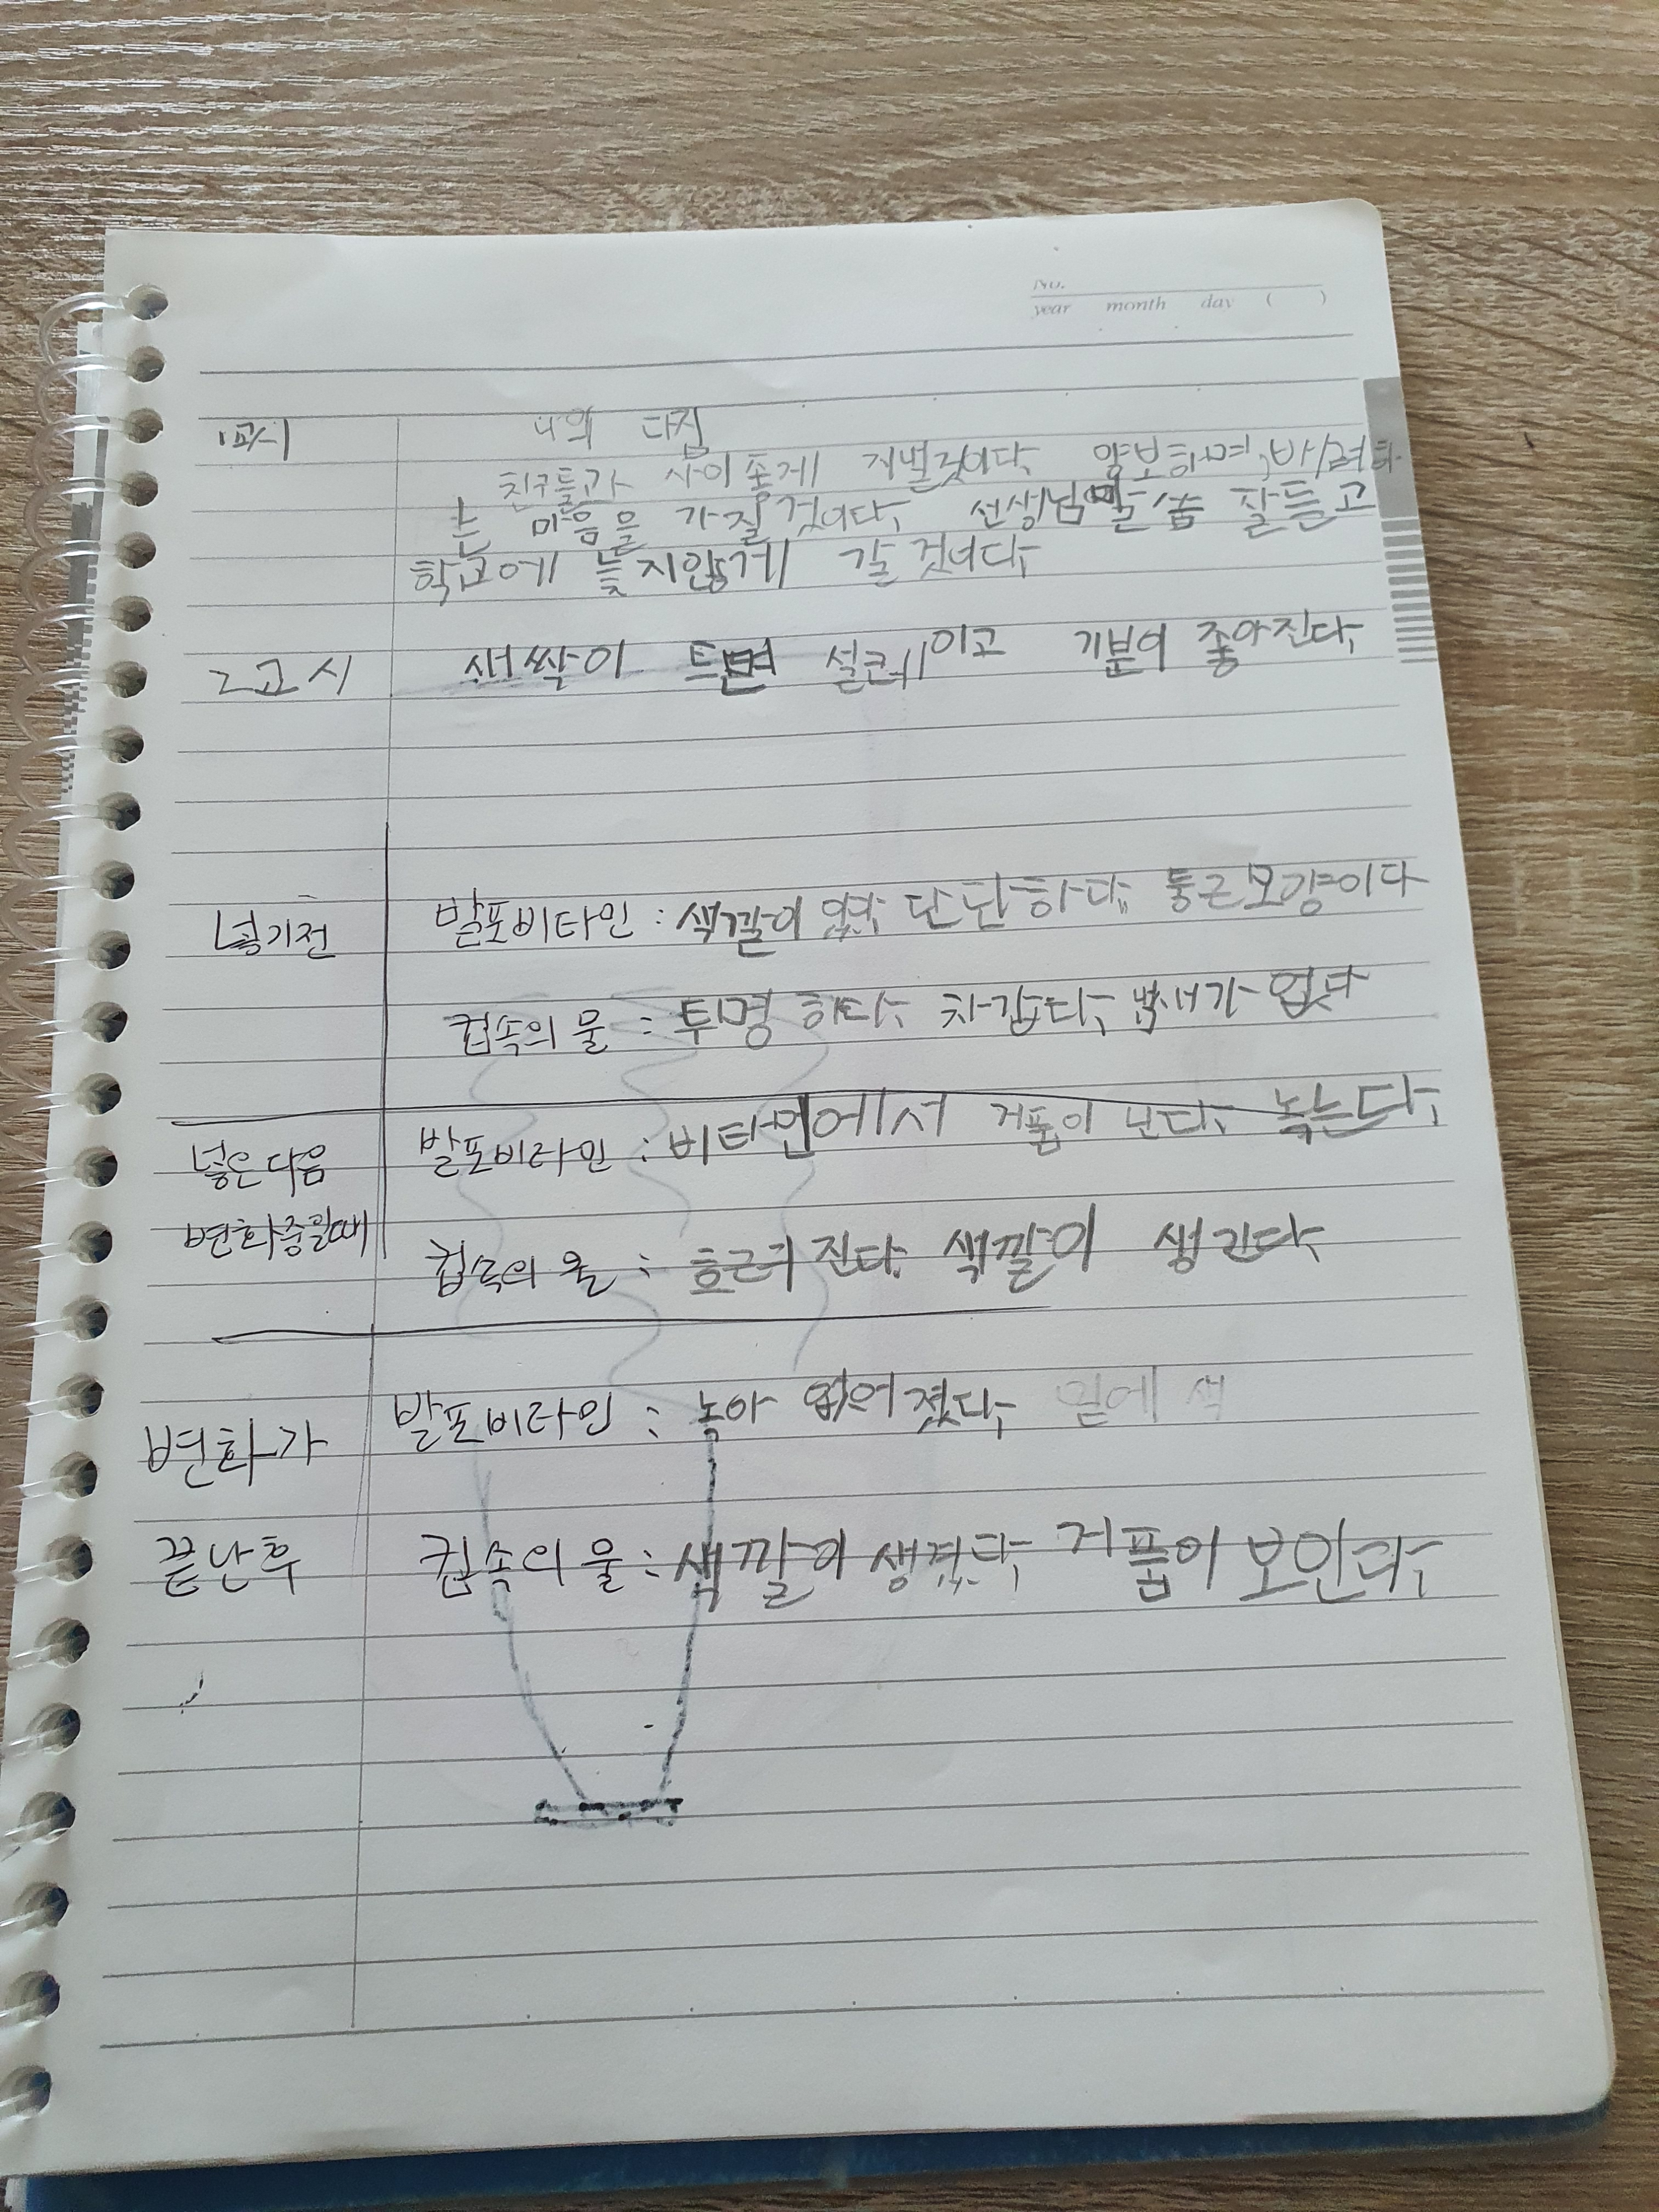 No.
year month day ( )
1교시 나의 다짐
친구들과 사이좋게 지낼것이다. 양보하며, 배려하
는 마음을 가질것이다. 선생님 말씀 잘듣고
학교에 늦지않게 갈것이다.
2교시 새싹이 트면 이고 기분이 좋아진다.
넣기전 발포비타민 : 색깔이 있다. 단단하다. 둥근모양이다
컵속의 물 : 투명하다. 차갑다. 냄새가 없다
발포비타민 : 비타민에서 거품이 난다. 녹는다.
넣은다음
변화중일때
컵속의 물 : 색깔이 생긴다.
발포비타민 : 녹아 없어졌다. 밑에 색
변화가
끝난후 컵속의 물 : 색깔이 생겼다. 거품이 보인다.